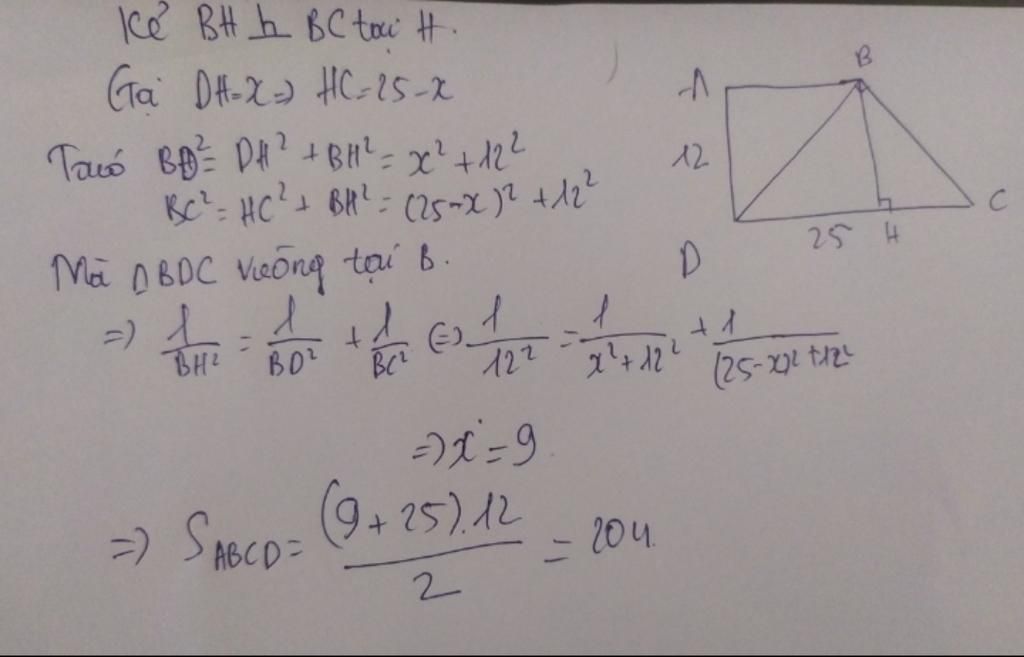 Kẻ BH ⊥ BC tại H.
Gọi DH=x => HC=25-x
Ta có BD² = DH² + BH² = x² + 12²
BC² = HC² + BH² = (25-x)² + 12²
Mà △BDC vuông tại B.
=> 1/BH² = 1/BD² + 1/BC² (=) 1/12² = 1/(x²+12²) + 1/((25-x)²+12²)
=> x = 9
=> S_ABCD = (9+25).12/2 = 204.
A
B
12
C
25
H
D